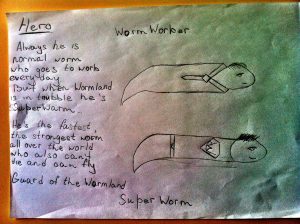 Hero
Worm Worker
Always he is
normal worm
who goes to work
everyday
but when Wormland
is in trubble he's
SuperWorm.
He's the fastest,
the strongest worm
all over the world
who also can't
die and can fly
Guard of the Wormland
Super Worm